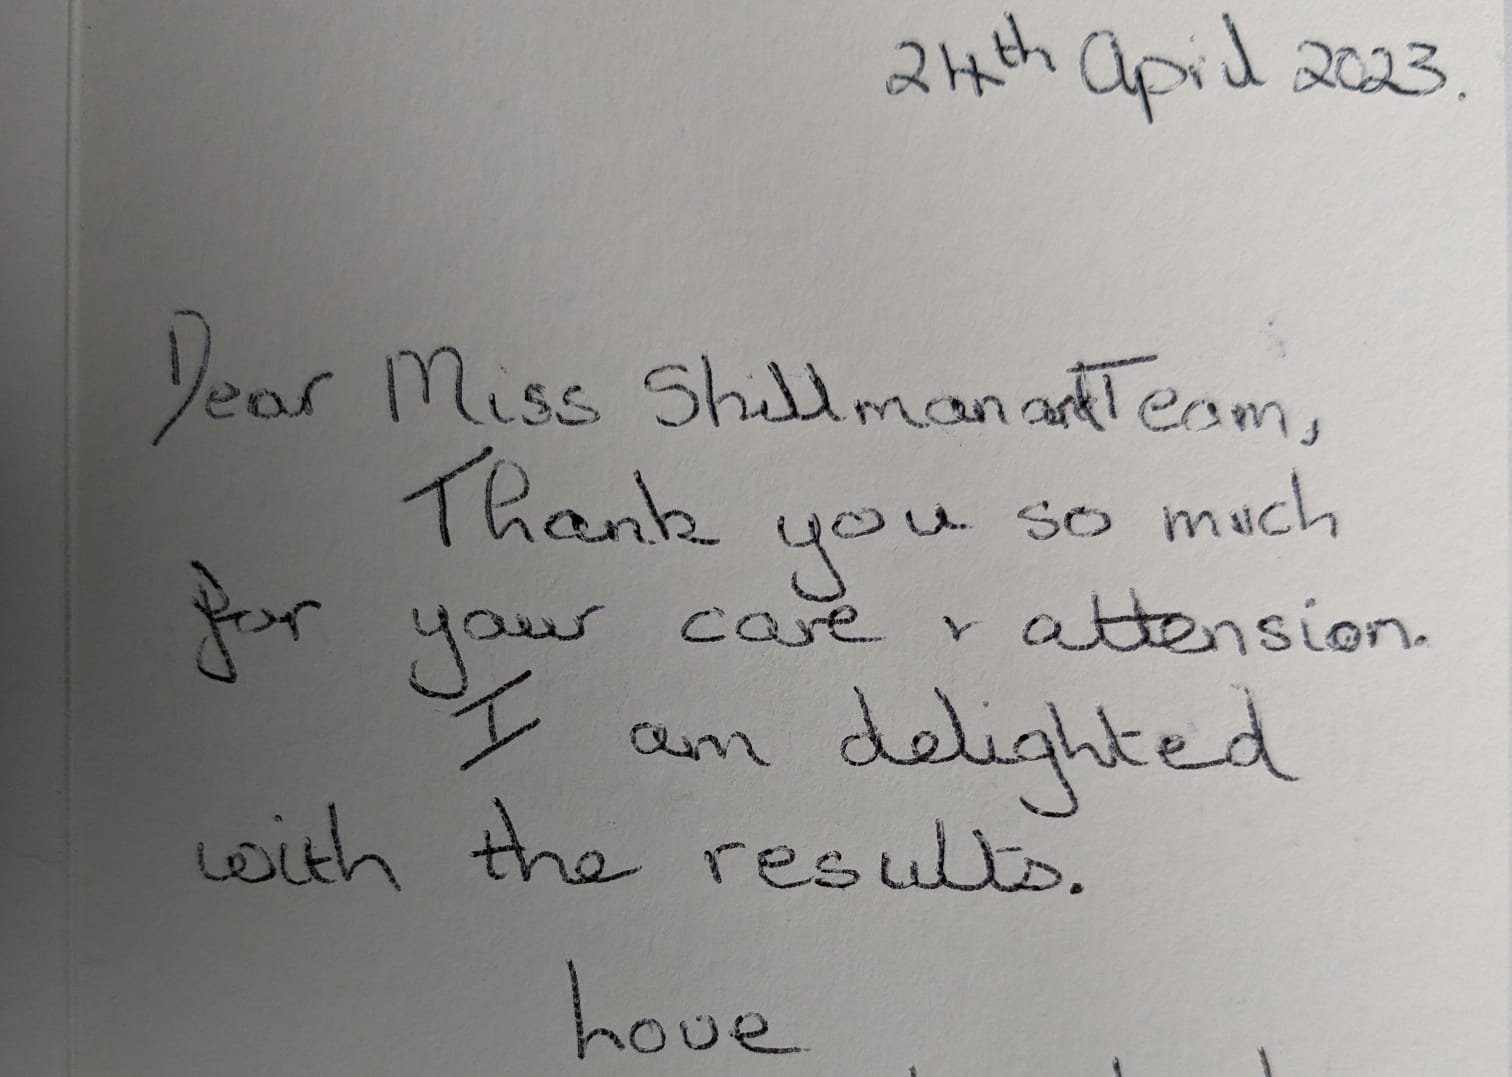 24th April 2023.
Dear Miss Shillman and Team,
Thank you so much
for your care & attension.
I am delighted
with the results.
Love